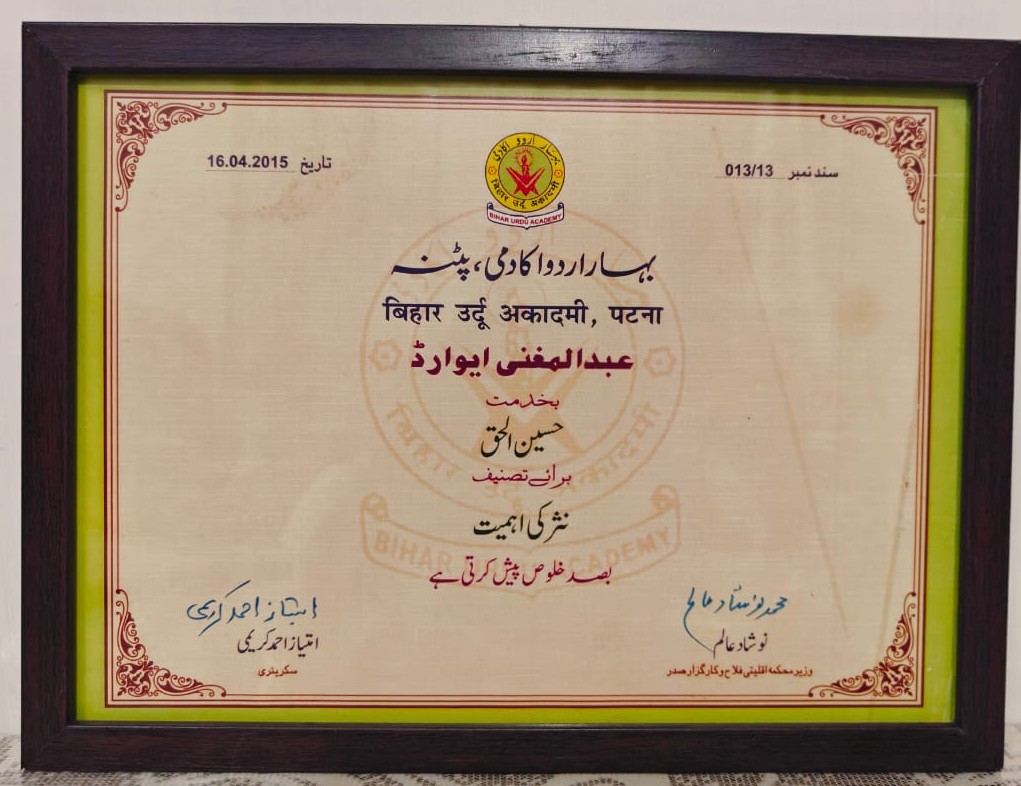 سند نمبر 013/13
تاریخ 16.04.2015
بہار اردو اکادمی
बिहार उर्दू अकादमी
BIHAR URDU ACADEMY
بہار اردو اکادمی، پٹنہ
बिहार उर्दू अकादमी, पटना
عبدالمغنی ایوارڈ
بخدمت
حسین الحق
برائے تصنیف
نثر کی اہمیت
بصد خلوص پیش کرتی ہے
محمد نوشاد عالم
نوشاد عالم
وزیر محکمہ اقلیتی فلاح و کارگزار صدر
امتیاز احمد کریمی
امتیاز احمد کریمی
سکریٹری
बिहार उर्दू अकादमी
BIHAR URDU ACADEMY